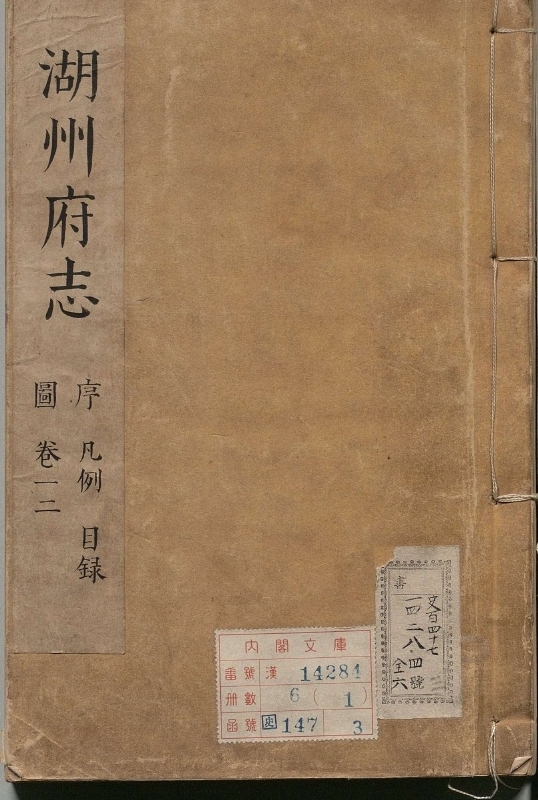 湖州府志
序 凡例 目録
圖 卷一二
内閣文庫
番號 漢 14284
册數 6 (1)
函號 史 147 3
書
一四二八四號
全六